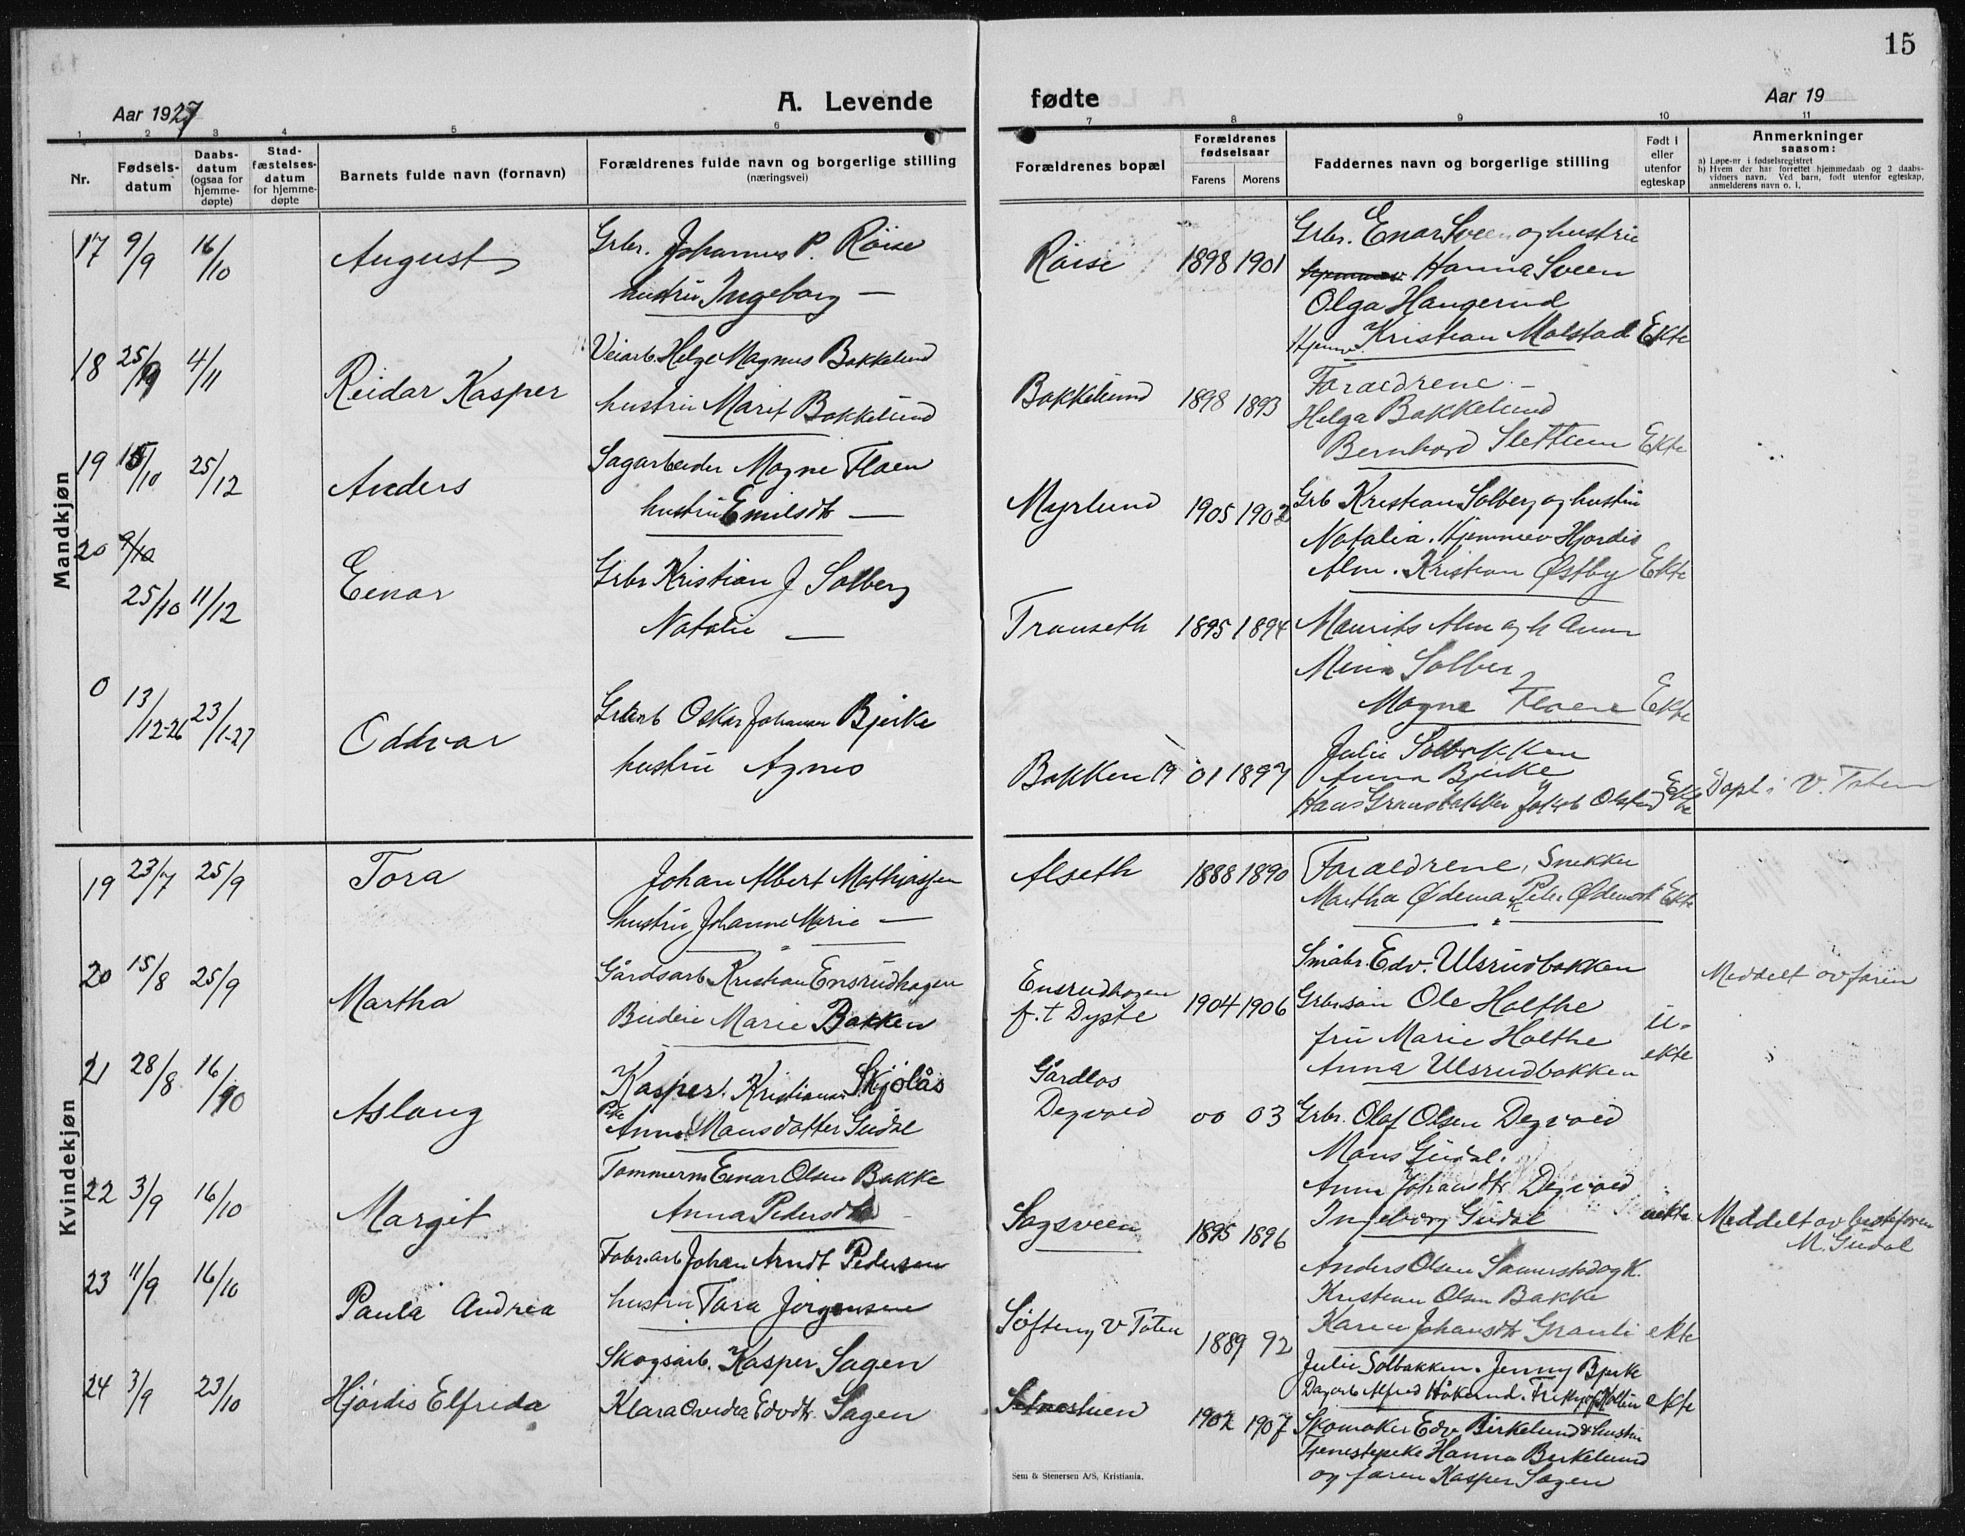 15
Aar 1927
A. Levende
fødte
Aar 19
1 2 3 4 5 6 7 8 9 10 11
Nr.
Fødsels-
datum
Daabs-
datum
(ogsaa for
hjemme-
døpte)
Stad-
fæstelses-
datum
for hjemme-
døpte
Barnets fulde navn (fornavn)
Forældrenes fulde navn og borgerlige stilling
(næringsvei)
Forældrenes bopæl
Forældrenes
fødselsaar
Farens Morens
Faddernes navn og borgerlige stilling
Født i
eller
utenfor
egteskap
Anmerkninger
saasom:
a) Løpe-nr i fødselsregistret
b) Hvem der har forrettet hjemmedaab og 2 daabs-
vidners navn. Ved barn, født utenfor egteskap,
anmelderens navn o. l.
Mandkjøn
17 9/9 16/10 August
Grbr. Johannes P. Röise
hustru Ingeborg —
Röise 1898 1901
Grbr. Enar Sveen og hustru
Hanna Sveen
Olga Haugerud
Hjemmev. Kristian Molstad Ekte
18 25/9 4/11 Reidar Kasper
Veiarb. Helge Magnus Bakkelund
hustru Marit Bakkelund
Bakkelund 1898 1893
Foraeldrene —
Helga Bakkelund
Bernhard Slettum Ekte
19 /10 25/12 Anders
Sagarbeider Magne Floen
hustru Emilsdtr —
Myrlund 1905 1902
Grb Kristian Solberg og hustru
Natalia. Hjemmev Hjordis
Alm. Kristian Østby Ekte
20 9/10
25/10 11/12 Einar
Grbr Kristian J Solberg
Natalie —
Transeth 1895 1894
Maurits Alm og h Anna
Mina Solberg
Magne Floene Ekte
0 13/12-26 23/1-27 Oddvar
Oskar Johansen Bjerke
hustru Agnes
Bakken 1901 1897
Julie Solbakken
Anna Bjerke
Hans Gransbakken Jakob Olstad Ekte
Döpt i V. Toten
Kvindekjøn
19 23/7 25/9 Tora
Johan Albert Mathiassen
hustru Johanne Marie —
Alseth 1888 1890
Foraldrene, Snekker
Martha Ødemark Peter Ødemark Ekte
20 15/8 25/9 Martha
Gårdsarb Kristian Ensrudhagen
Budeie Marie Bakken
Ensrudhagen
f. t Dyste 1904 1906
Småbr. Edv. Ulsrudbakken
Grbrsön Ole Holthe
fru Marie Holthe
Anna Ulsrudbakken
u-
ekte
Meddelt av faren
21 28/8 16/10 Aslaug
Kasper. Kristiansen Skjölås
Pike Anna Mansdatter Gudal
Gårdlos
Degvold 00 03
Grbr. Olaf Olsen Degvold
Mons Gudal.
Anna Johansdtr Degvold
Ingeborg Gudal uekte
Meddelt av bestefaren
M. Gudal
22 3/9 16/10 Margit
Tømmerm Einar Olsen Bakke
Anna Pedersdtr —
Sagsveen 1895 1896
Anders Olsen Samerstad og k.
Kristian Olsen Bakke
Karen Johansdtr Granli ekte
23 11/9 16/10 Paula Andrea
Fabr. arb Johan Arndt Pedersen
hustru Tora Jörgensen
Søfteng V Toten 1889 92
Julie Solbakken. Jenny Bjerke
Dagarb Alfred Håkerud. Holtun ekte
24 3/9 23/10 Hjördis Elfrida
Skogsarb. Kasper Sagen
Klara Ovidia Edvdtr. Sagen
1902 1907
Skomaker Edv Birkelund & hustru
tjenestepike Hanna Berkelund
og faren Kasper Sagen
Sem & Stenersen A/S, Kristiania.